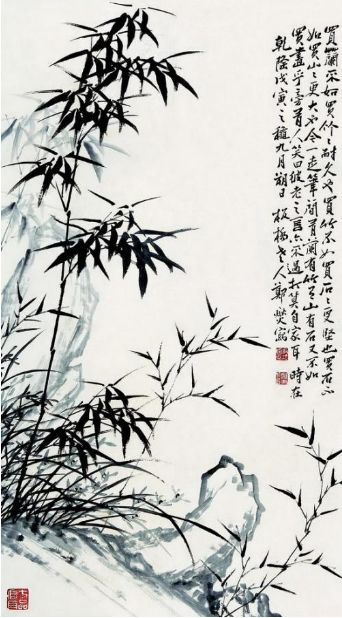 買蘭不如買竹之耐久也買竹不如買石之更堅也買石不
如買山之更大也今一走筆間有蘭有竹有山有石又不如
買畫乎旁有人笑曰板老之言亦不過打算自家耳時在
乾隆戊寅之穐九月朔日 板橋老人鄭燮寫